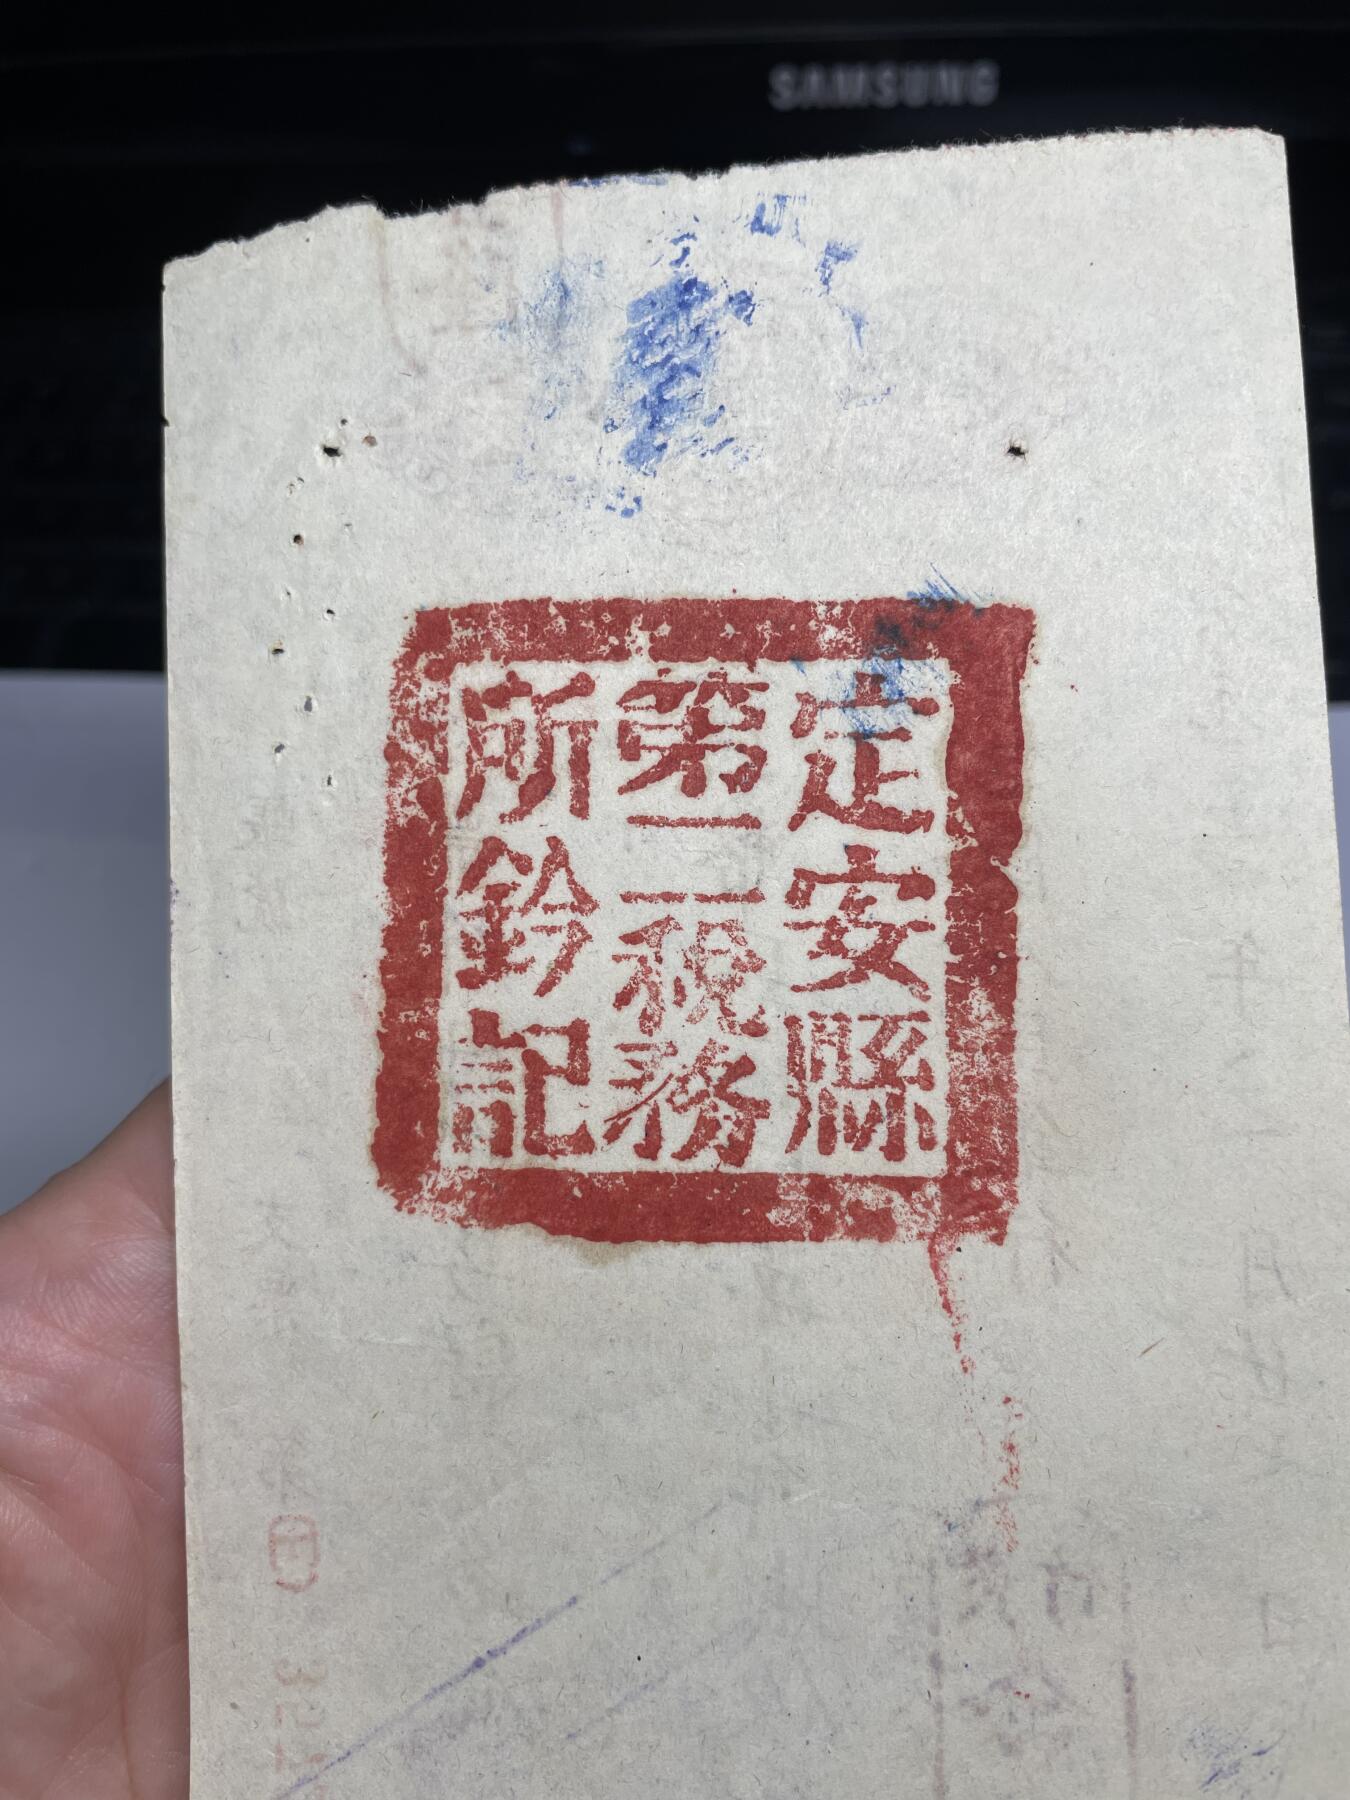 SAMSUNG
定安縣
第二税務
所鈐記